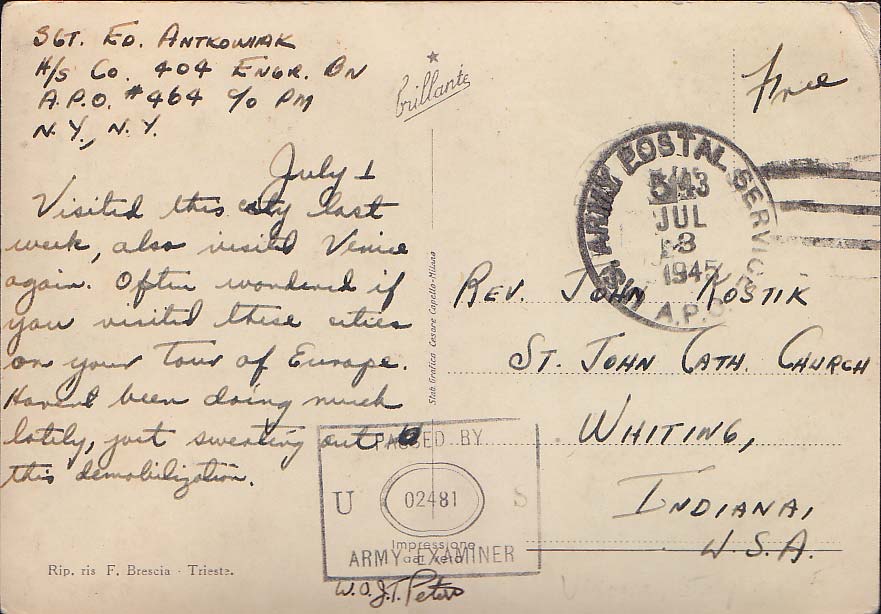 SGT. ED. ANTKOWIAK
H/S CO. 404 ENGR. BN
A.P.O. #464 c/o PM
N.Y., N.Y.
July 1
Visited this city last
week, also visited Venice
again. Often wondered if
you visited these cities
on your tour of Europe.
Havent been doing much
lately, just sweating out
this demobilization.
Rip. ris F. Brescia - Trieste.
Brillante
Stab. Grafico Cesare Capello - Milano
Free
ARMY POSTAL SERVICE
JUL
1945
A.P.O.
REV. JOHN KOSTIK
ST. JOHN CATH. CHURCH
WHITING,
INDIANA,
U.S.A.
PASSED BY
U 02481 S
Impressione
ARMY EXAMINER
W.O. J.T. Peters